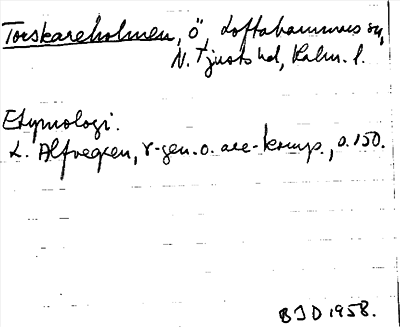 Torskareholmen, ö, Loftahammars sn,
N. Tjusts hd, Kalm. l.
Etymologi.
L. Alfvegren, r-gen. o. are-komp., s. 150.
BJD 1958.